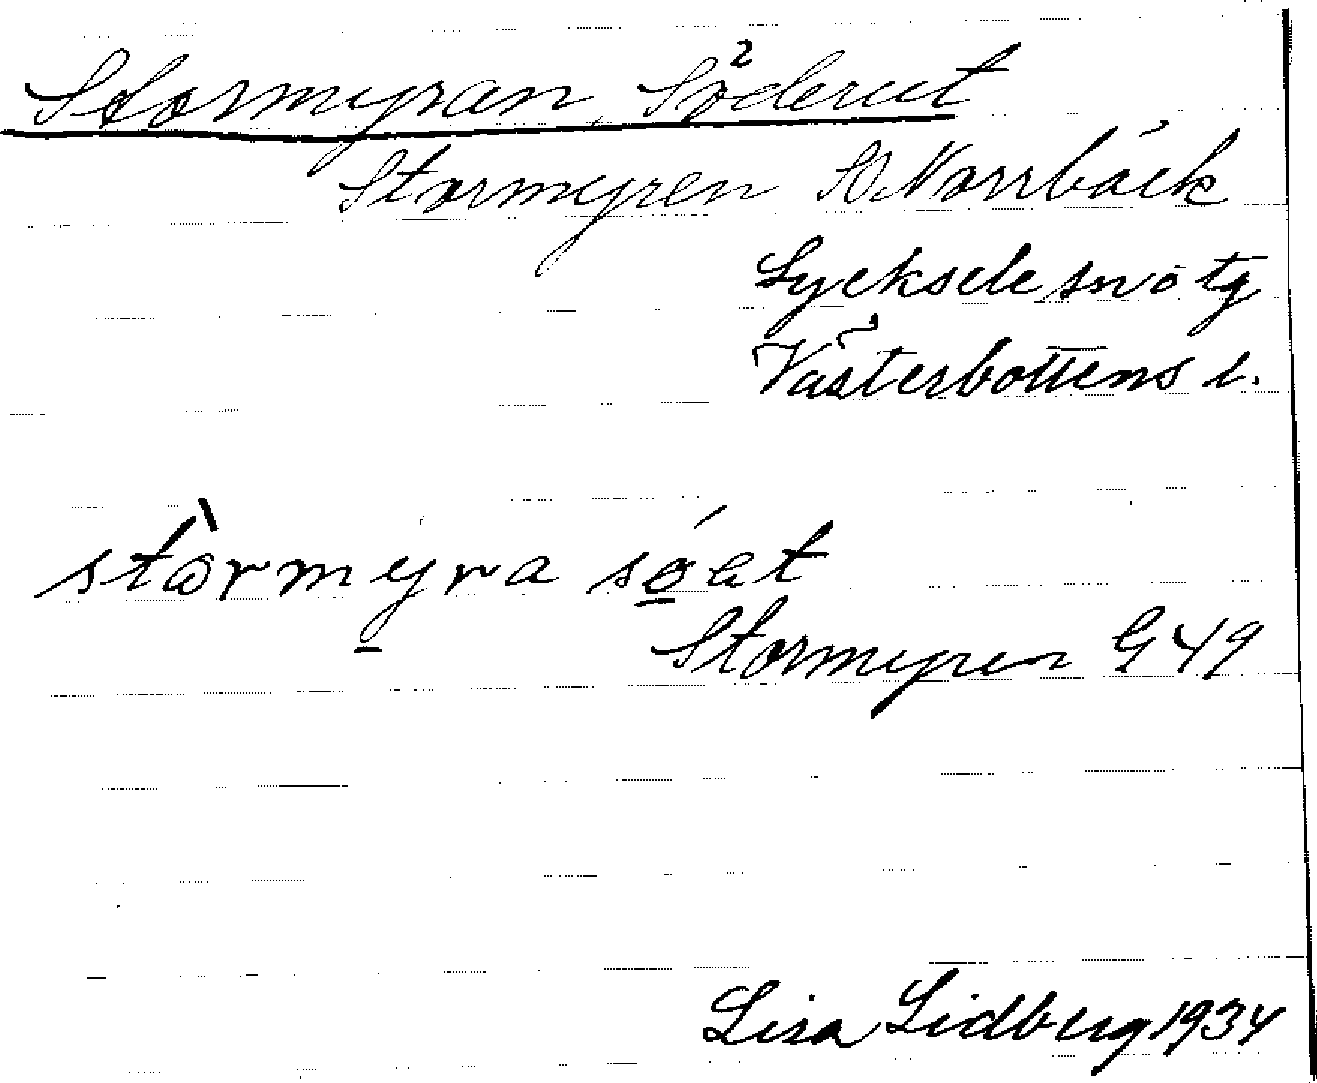 Stormyran, Söderut
Stormyren S. Norrbäck
Lycksele sn o tg
Västerbottens l.
stòrmyra söat
Stormyren G 49
Lisa Lidberg 1934